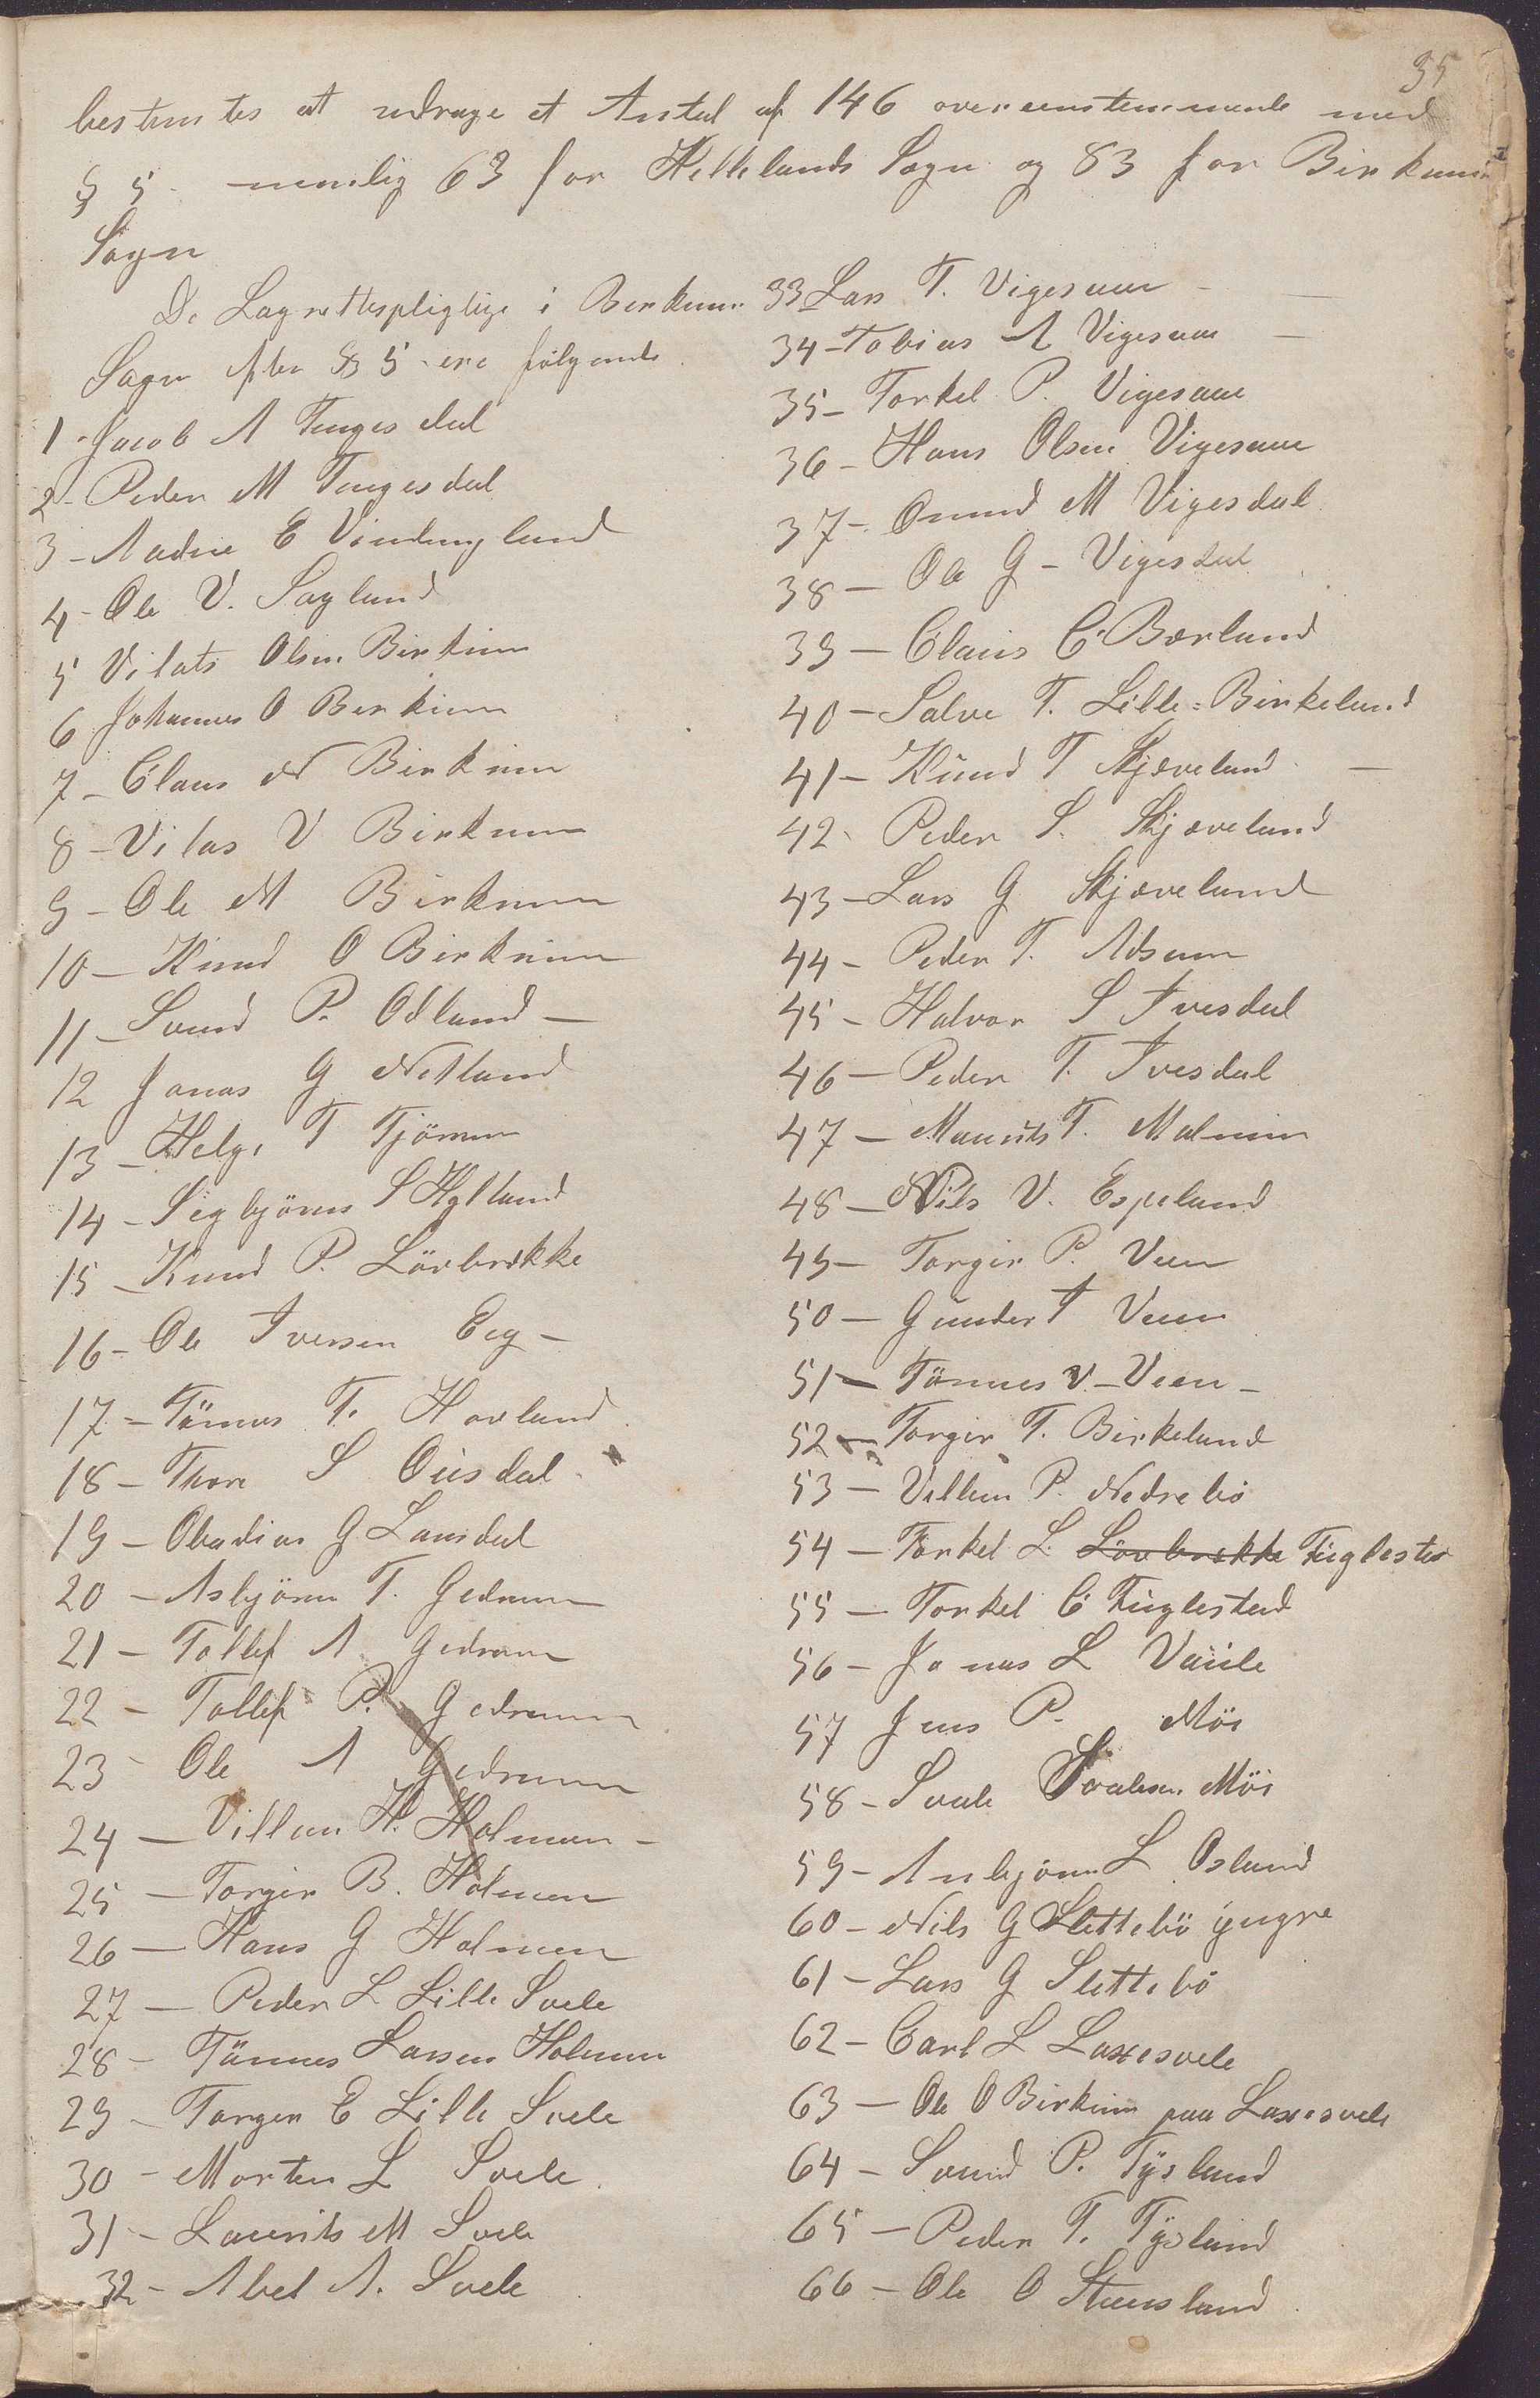 35
bestemtes at udrage et Antal af 146 overensstemmende med
§ 5 nemlig 63 for Hellelands Sogn og 83 for Birkrem
Sogn
De Lagrettespligtige i Birkrem
Sogn efter § 5 ere følgende
1 - Jacob A Tengesdal
2 - Peder M Tengesdal
3 - Aadne E Vindingland
4 - Ole V. Sagland
5 Vilats Olsen Birkrim
6 Johannes O Birkrim
7 - Claus N Birkrim
8 - Vilas V Birkrim
9 - Ole M Birkrim
10 - Knud O Birkrim
11 - Svend P. Odland -
12 Jonas G Netland
13 - Helge T Tjörnm
14 - Sigbjörn S Hytland
15 - Knud P. Lövbrække
16 - Ole Iversen Eeg -
17 - Tönnes T. Hovland
18 - Thore S Øisdal
19 - Obadias G Lausdal
20 - Asbjörn T. Gedrem
21 - Tollef A Gedrem
22 - Tollef P. Gedrem
23 - Ole A Gedrem
24 - Villum H. Holmen -
25 - Torger B. Holmen
26 - Hans G Holmen
27 - Peder L Lille Svele
28 - Tönnes Larsen Holmen
29 - Torger E Lille Svele
30 - Morten L Svele
31 - Laurits M Svele
32 - Abel A. Svele
33 Lars T. Vigesaae -
34 - Tobias A Vigesaae -
35 - Torkel P. Vigesaae
36 - Hans Olsen Vigesaae
37 - Omund M Vigesdal
38 - Ole G - Vigesdal
39 - Claus C Bærland
40 - Salve T. Lille=Birkeland
41 - Knud T Skjæveland -
42 - Peder S. Skjæveland
43 - Lars G Skjæveland
44 - Peder T. Adsem
45 - Halvor S Ivesdal
46 - Peder T. Ivesdal
47 - Maurits T. Malmin
48 - Nils V. Espeland
49 - Torger P. Veen
50 - Gunder T Veen
51 - Tönnes V - Veen -
52 - Torger T. Birkeland
53 - Villum P. Nedrebö
54 - Torkel L. Lövbrække Fuglestad
55 - Torkel C Fuglestad
56 - Jonas L Vaule
57 Jens P. Möi
58 - Svale Svalesen Möi
59 - Anbjörn L. Osland
60 - Nils G Slettebö yngre
61 - Lars G Slettebö
62 - Carl L Laxesvele
63 - Ole O Birkrim paa Laxesvele
64 - Svend P. Tysland
65 - Peder T. Tysland
66 - Ole O Steensland